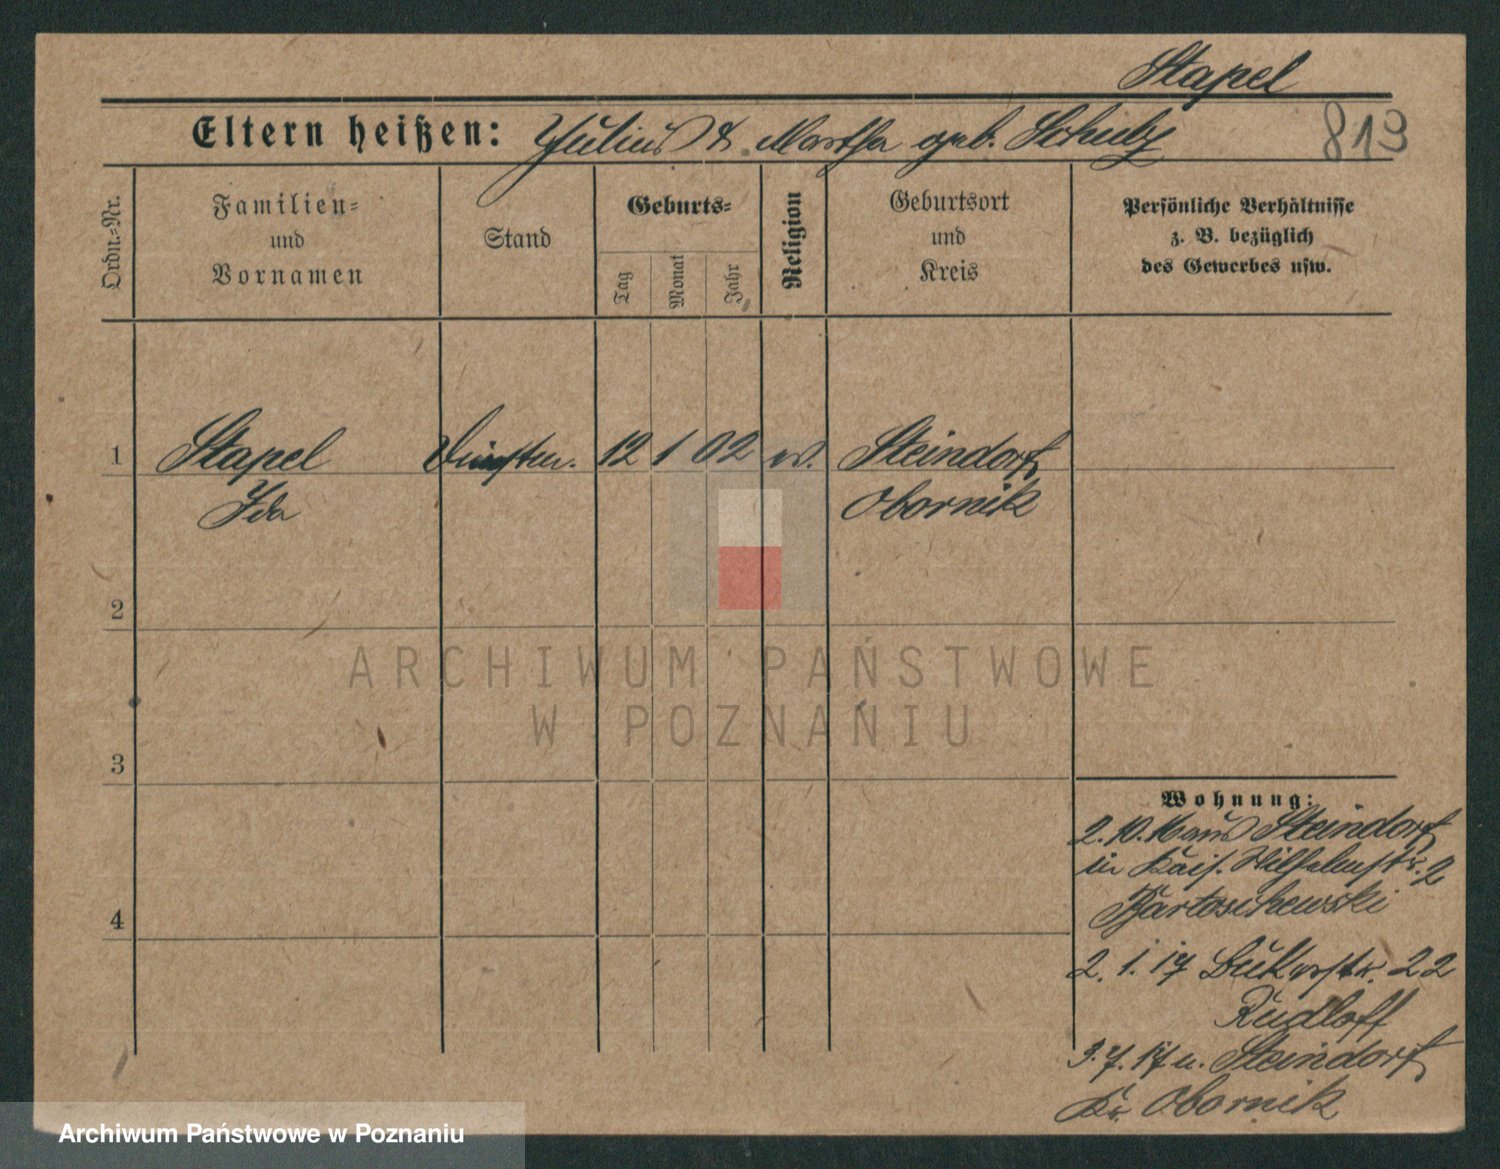 Stapel
Eltern heißen: Julius & Martha geb. Schulz
819
Ordn.=Nr.
Familien=
und
Vornamen
Stand
Geburts=
Tag
Monat
Jahr
Religion
Geburtsort
und
Kreis
Persönliche Verhältnisse
z. B. bezüglich
des Gewerbes usw.
1 Stapel 12 1 02 ev. Steindorf
Ida Obornik
2
ARCHIWUM PAŃSTWOWE
W POZNANIU
3
Wohnung:
2. 10. 16 aus Steindorf
in Kais. Wilhelmstr. 2
Bartoschewski
4
2. 1. 17 22
Rudloff
3. 7. 17 n. Steindorf
Kr. Obornik
Archiwum Państwowe w Poznaniu